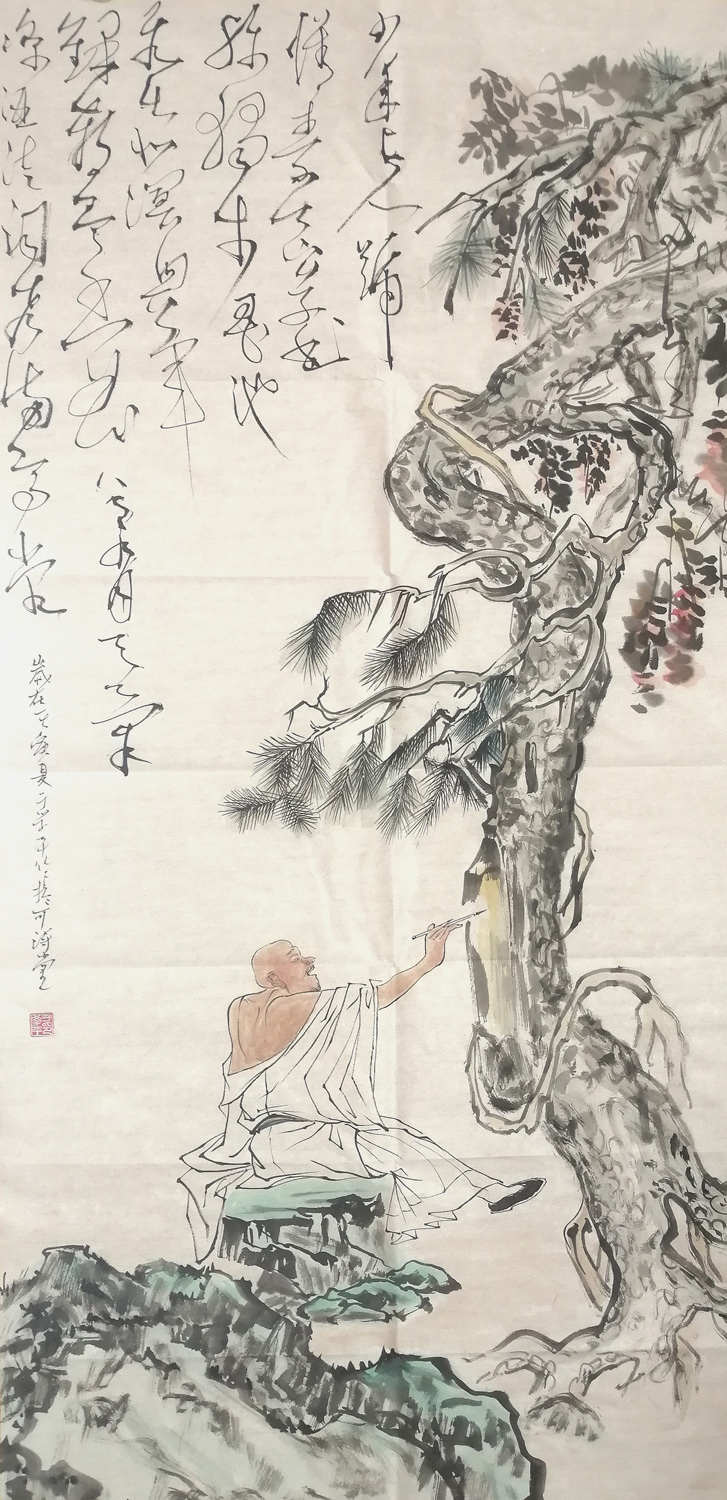 少年上人號
懷素草書天下
稱獨步墨池
飛出北溟魚筆
鋒殺盡中山兔八月九月天氣
涼酒徒詞客滿高堂
歲在壬寅夏